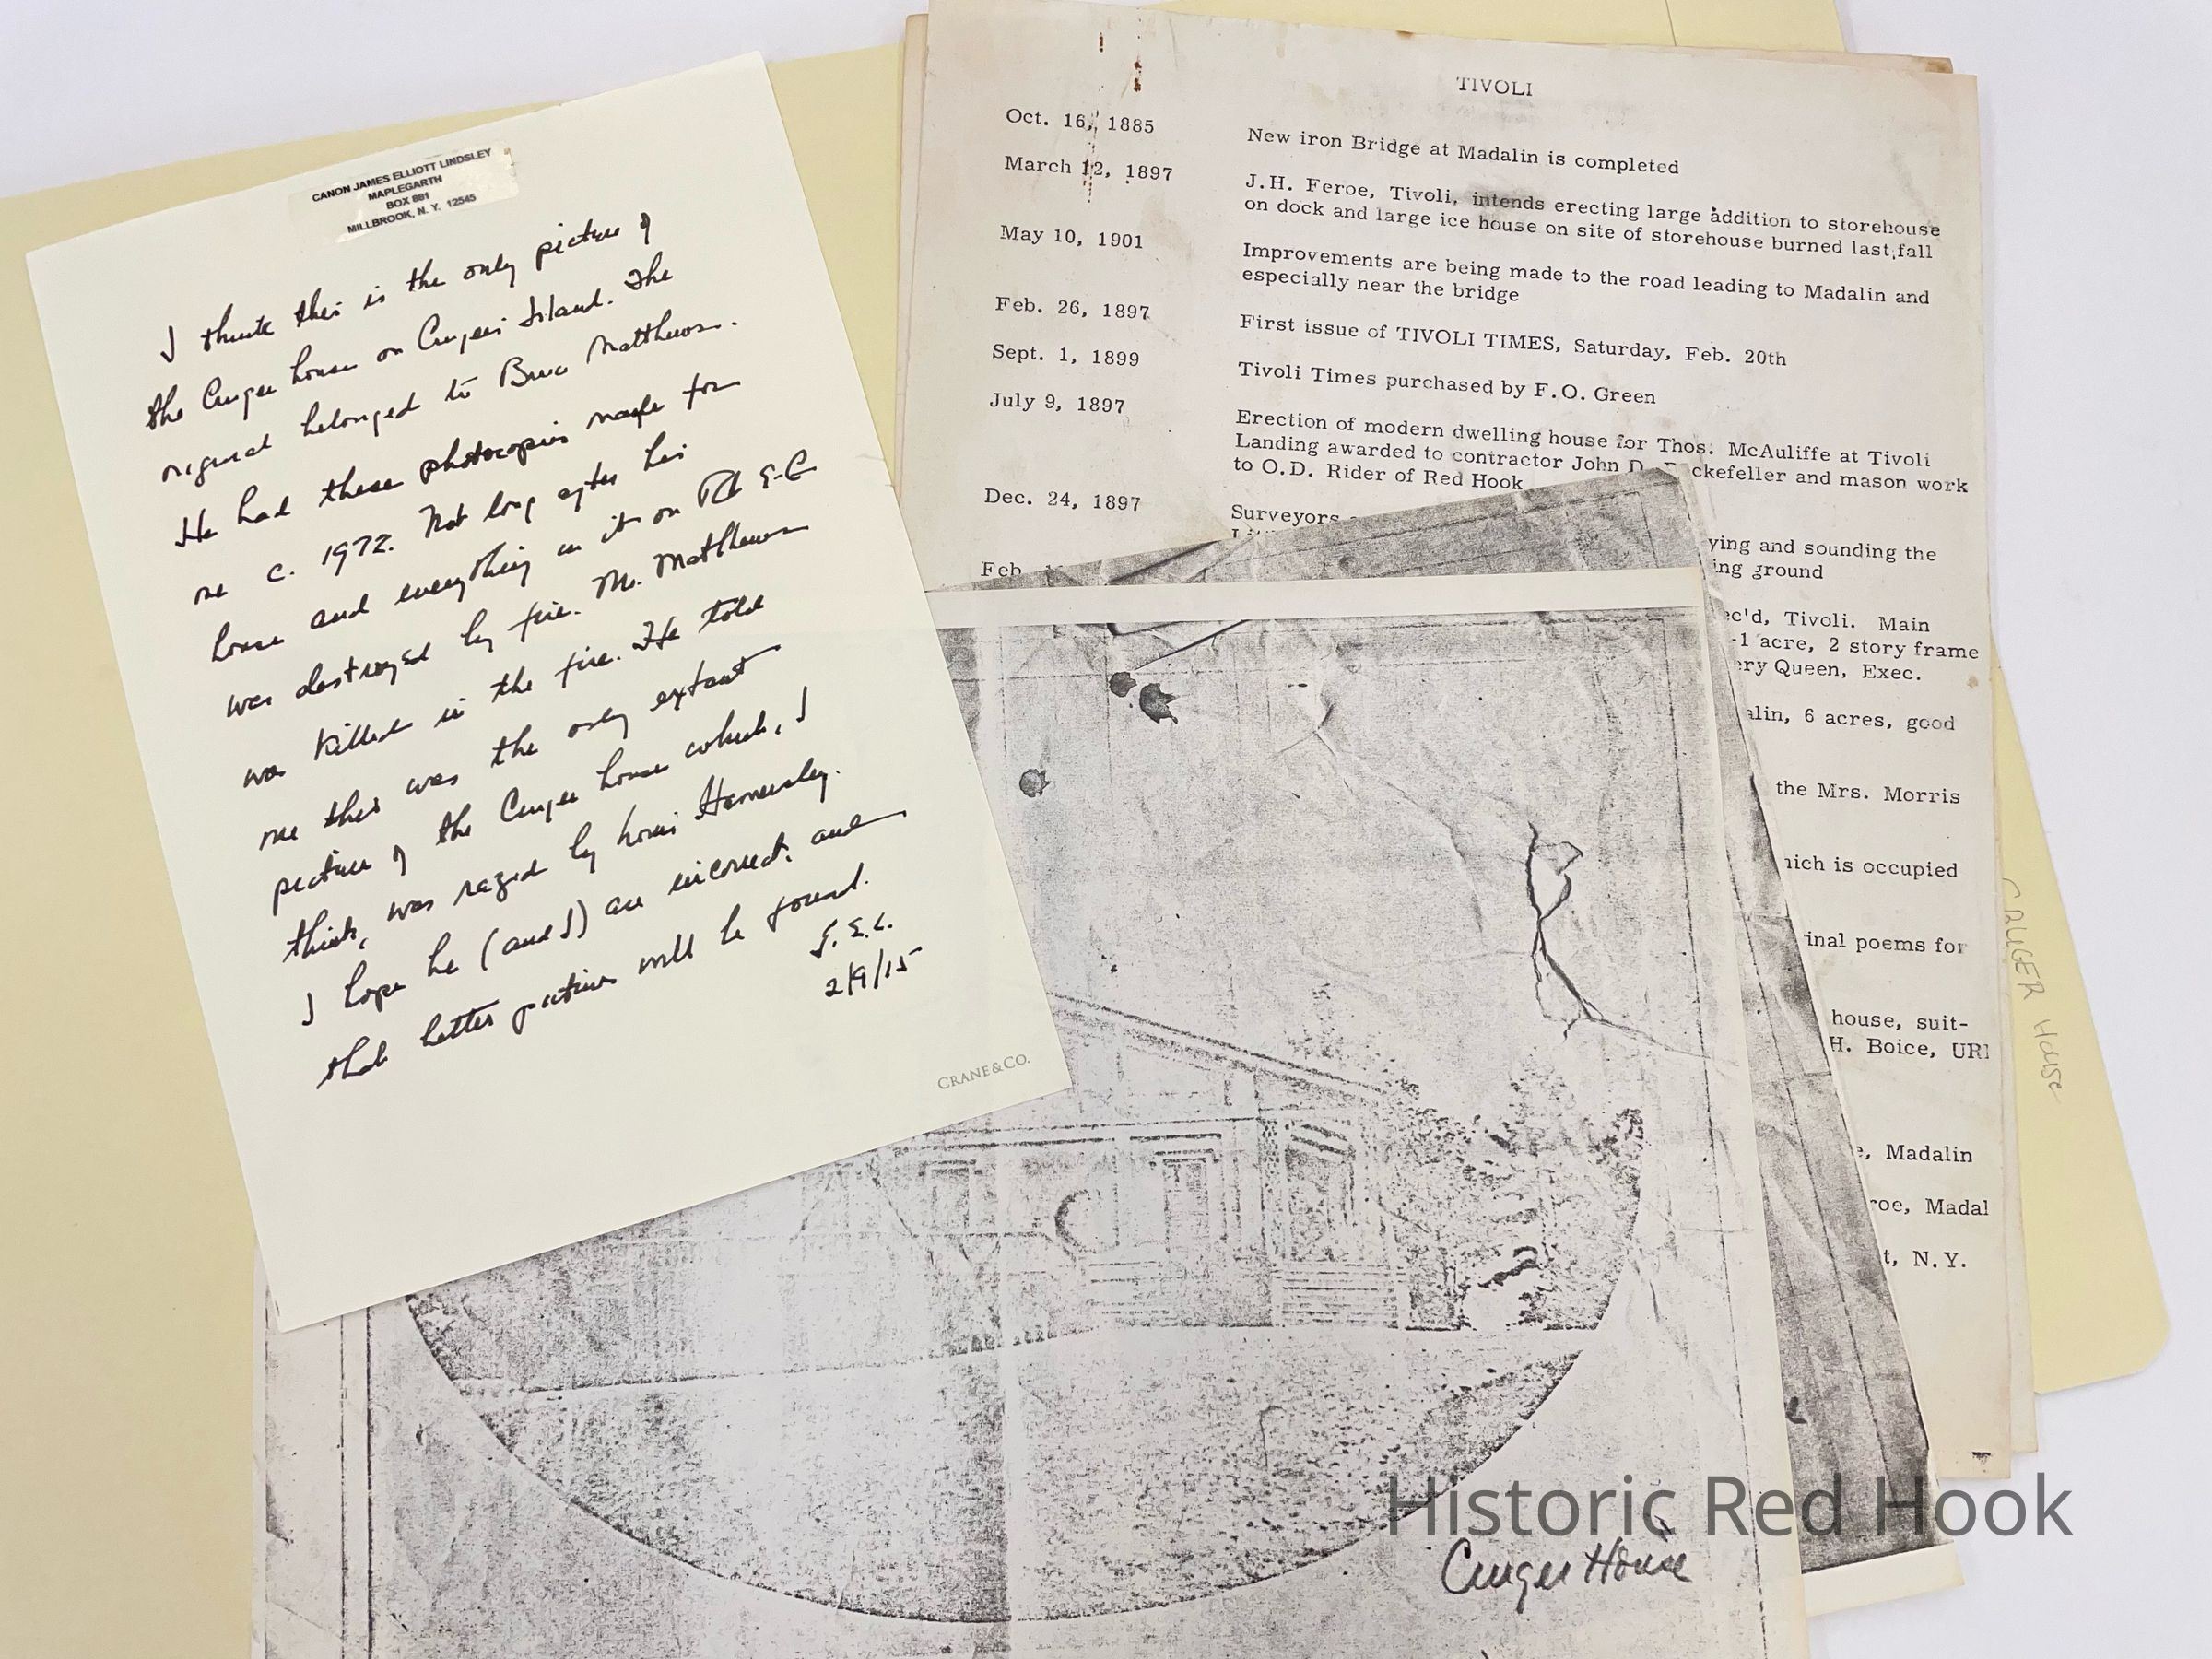 CANON JAMES ELLIOTT LINDSLEY
MAPLEGARTH
BOX 881
MILLBROOK, N. Y. 12545
I think this is the only picture of
the Cruger house on Crugers Island. The
original belonged to Bruce Matthews.
He had these photocopies made for
me c. 1972. Not long after his
house and everything in it on Rd 9-G
was destroyed by fire. Mr. Matthews
was killed in the fire. He told
me this was the only extant
picture of the Cruger house which, I
think, was razed by Louis Hamersley.
I hope he (and I) are incorrect and
that better pictures will be found.
J.E.L.
2/9/15
CRANE & CO.
TIVOLI
Oct. 16, 1885 New iron Bridge at Madalin is completed
March 12, 1897 J.H. Feroe, Tivoli, intends erecting large addition to storehouse
on dock and large ice house on site of storehouse burned last fall
May 10, 1901 Improvements are being made to the road leading to Madalin and
especially near the bridge
Feb. 26, 1897 First issue of TIVOLI TIMES, Saturday, Feb. 20th
Sept. 1, 1899 Tivoli Times purchased by F.O. Green
July 9, 1897 Erection of modern dwelling house for Thos. McAuliffe at Tivoli
Landing awarded to contractor John D. ckefeller and mason work
to O.D. Rider of Red Hook
Dec. 24, 1897 Surveyors
ying and sounding the
Feb. ing ground
ec'd, Tivoli. Main
-1 acre, 2 story frame
ery Queen, Exec.
alin, 6 acres, good
the Mrs. Morris
hich is occupied
inal poems for
house, suit-
H. Boice, URI
e, Madalin
roe, Madal
t, N.Y.
CRUGER House
Historic Red Hook
Cruger House